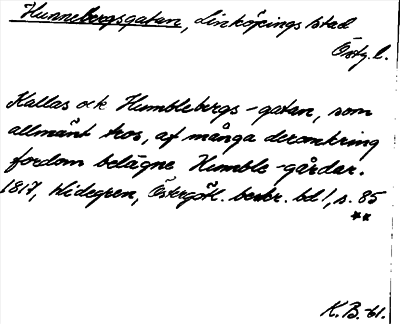 Hunnebergsgatan, Linköpings stad
Östg. l.
Kallas ock Humblebergs-gatan, som
allmänt tros, af många deromkring
fordom belägne Humble-gårdar.
1817, Widegren, Östergötl. beskr. bd 1, s. 85
**
K.B.-61.